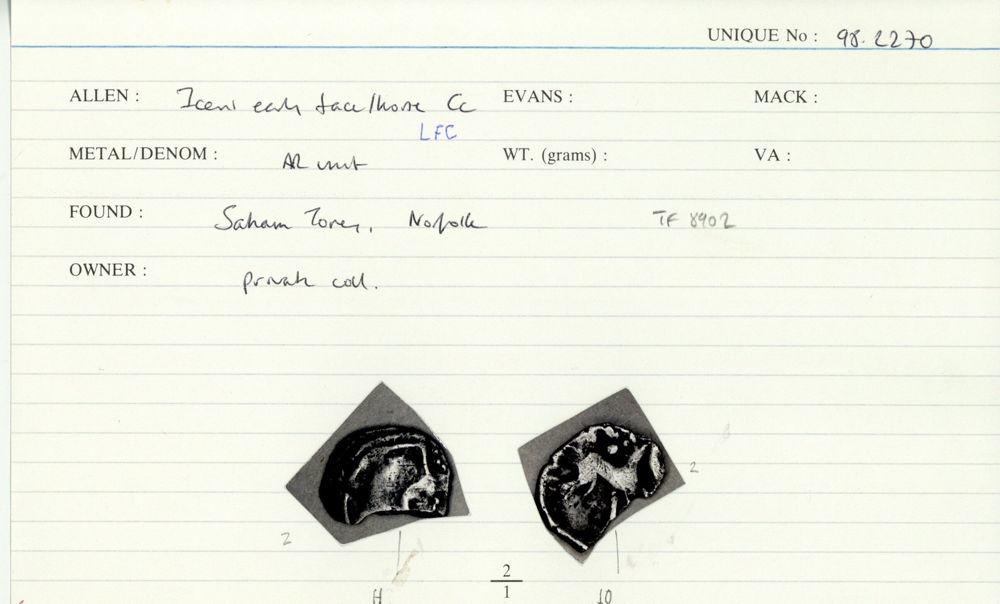 UNIQUE No : 98.2270
ALLEN : Iceni early face/horse Cc EVANS : MACK :
LFC
METAL/DENOM : AR unit WT. (grams) : VA :
FOUND : Saham Toney, Norfolk TF 8902
OWNER : private coll.
2
2
2
1
10